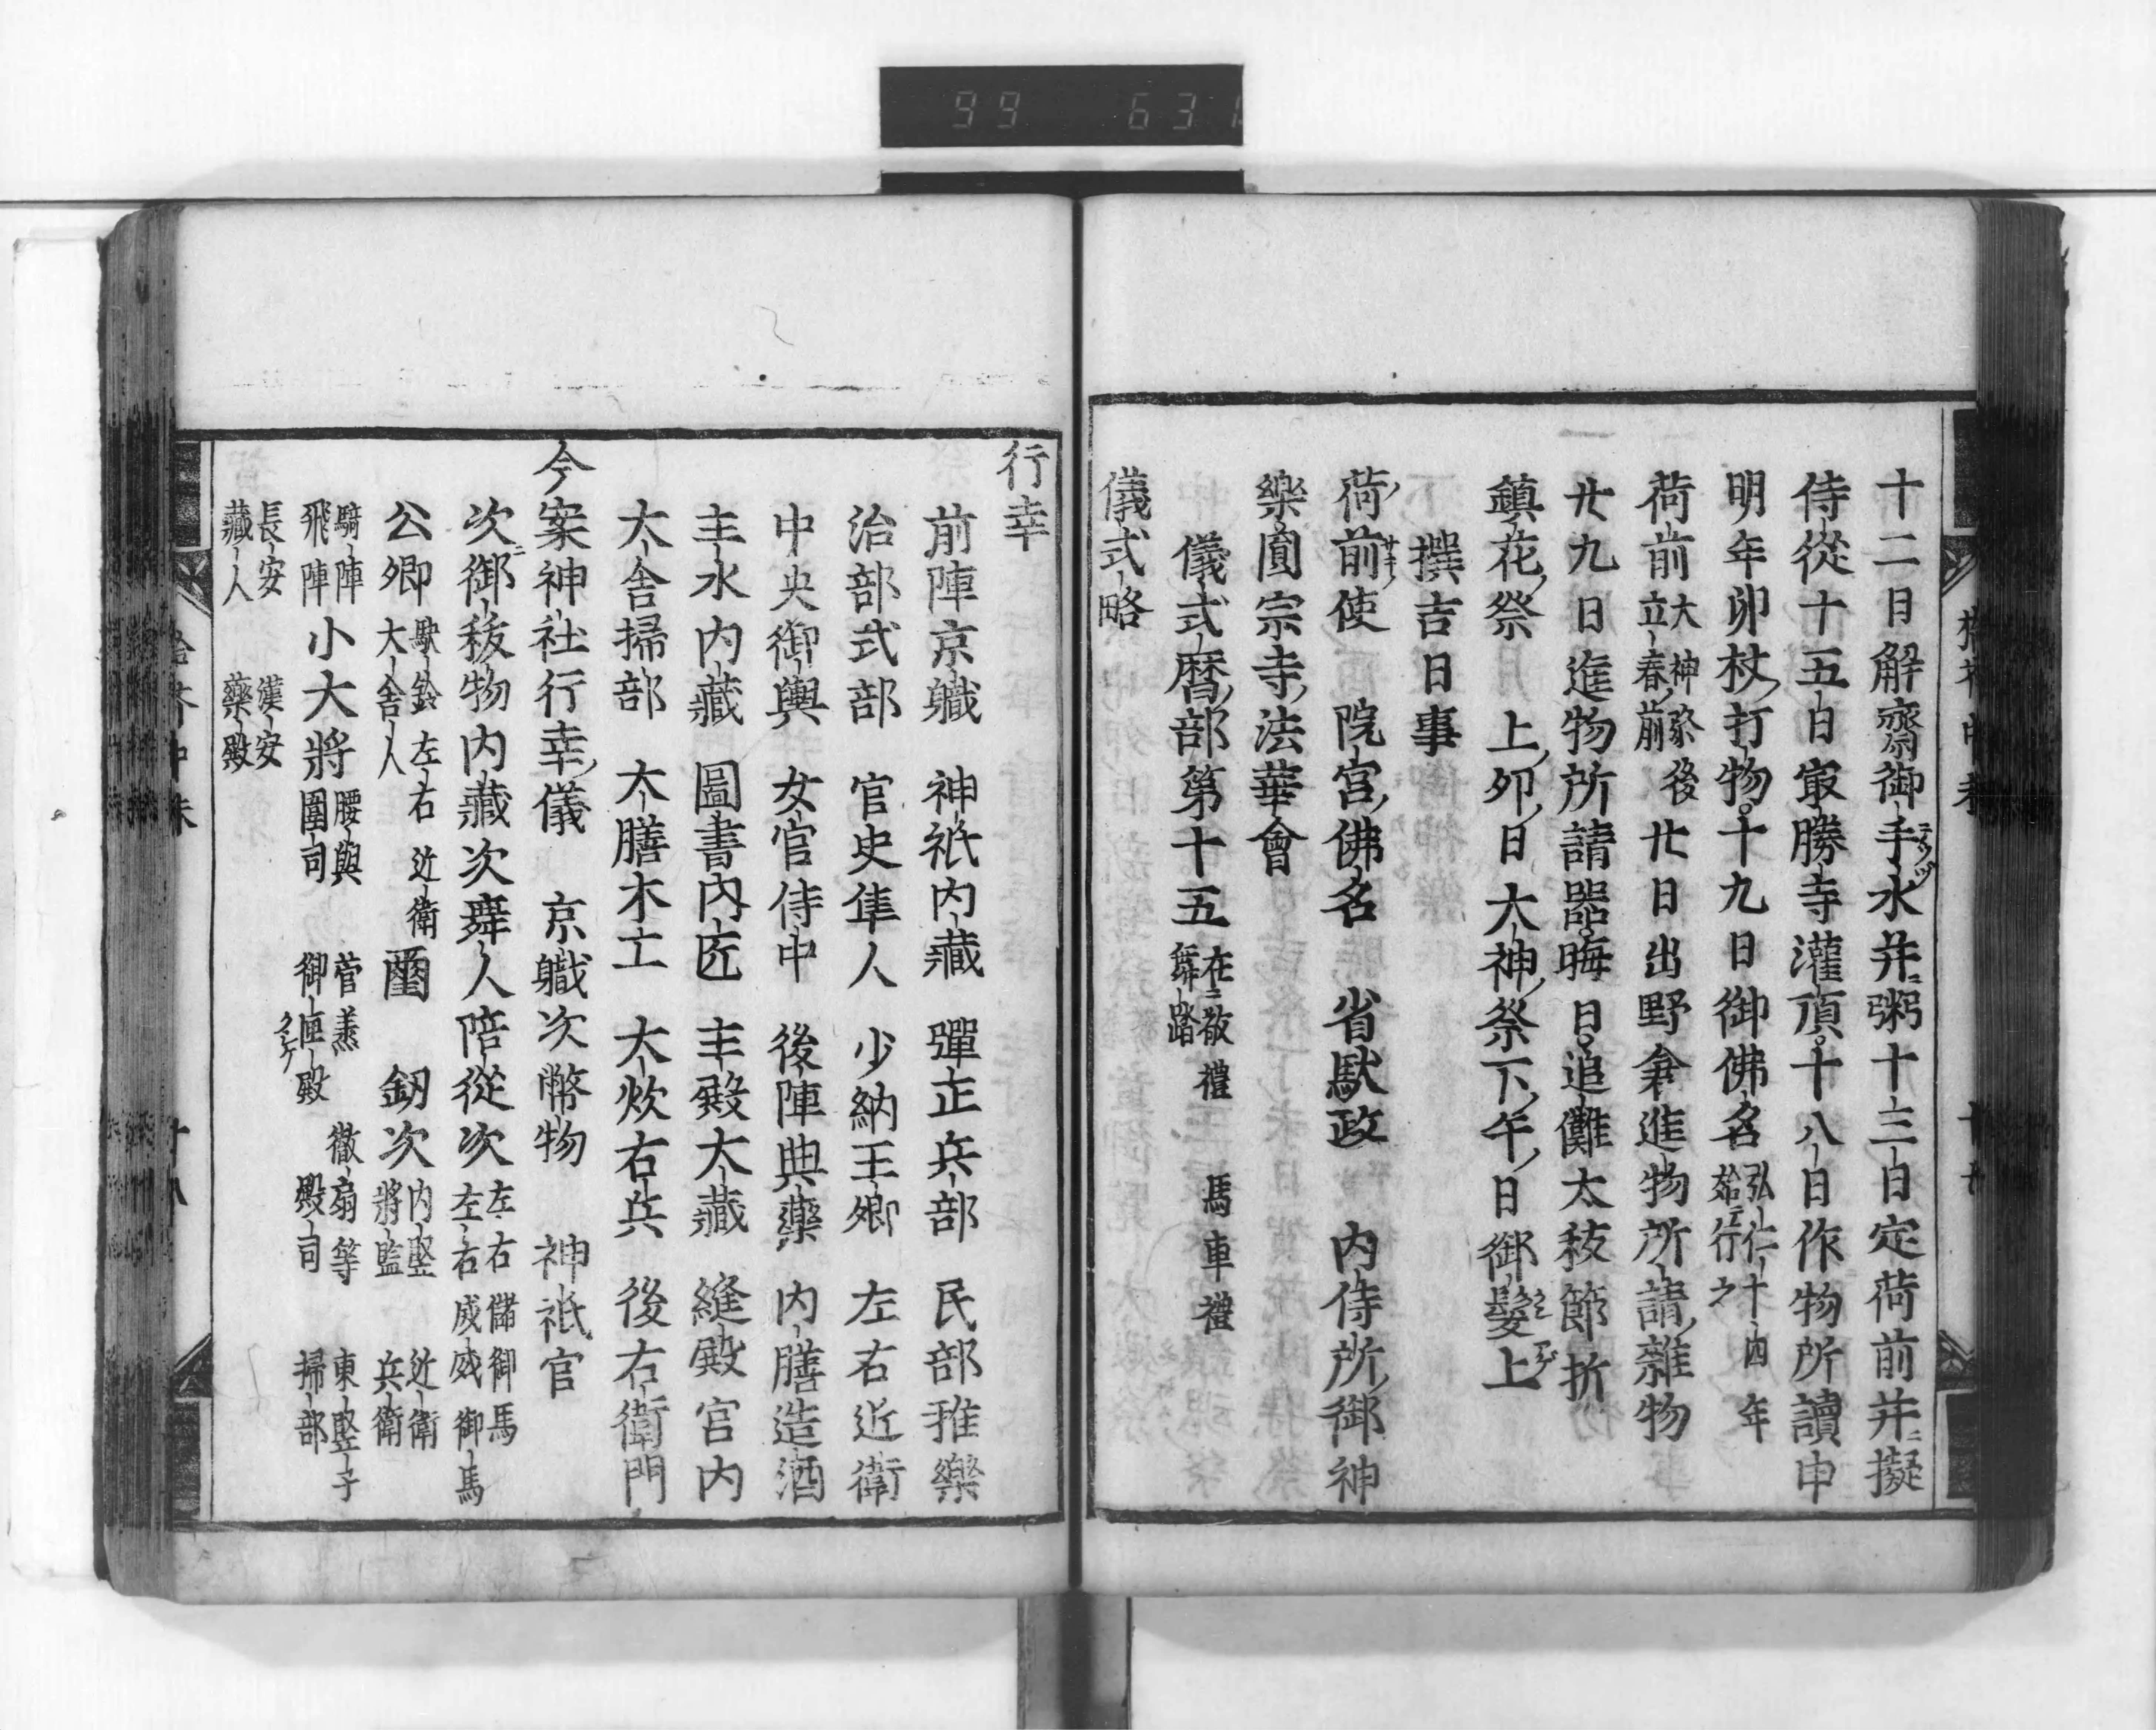 99 631
十二日解齋御手水并粥十三日定荷前并擬
侍從十五日㝡勝寺灌頂十八日作物所讀申
明年卯杖打物十九日御佛名弘仁十四年始行之
荷前大神祭後立春前廿日出野兼進物所請雜物
廿九日進物所請器晦日追儺太祓節折
鎮花祭月上卯日大神祭下午日御髮上
撰吉日事
荷前使 院宮佛名 省馱政 內侍所御神
樂圓宗寺法華會
儀式曆部第十五在散禮舞踏 馬車禮
儀式略
行幸
前陣京職 神祇內藏 彈正兵部 民部雅樂
治部式部 官史隼人 少納王卿 左右近衛
中央御輿 女官侍中 後陣典藥 內膳造酒
主水內藏 圖書內匠 主殿大藏 縫殿宮內
大舍掃部 大膳木工 大炊右兵 後右衛門
今案神社行幸儀 京職次幣物 神祇官
次御祓物內藏次舞人陪從次左右左右 儲御馬威威御馬
公卿馱鈴大舍人 左右近衛 璽 釼次內竪將監 近衛兵衛
騎陣飛陣小大將腰輿圍司 菅蓋御匣殿 徹扇等殿司 東竪子掃部
長安藏人 漢安藥殿